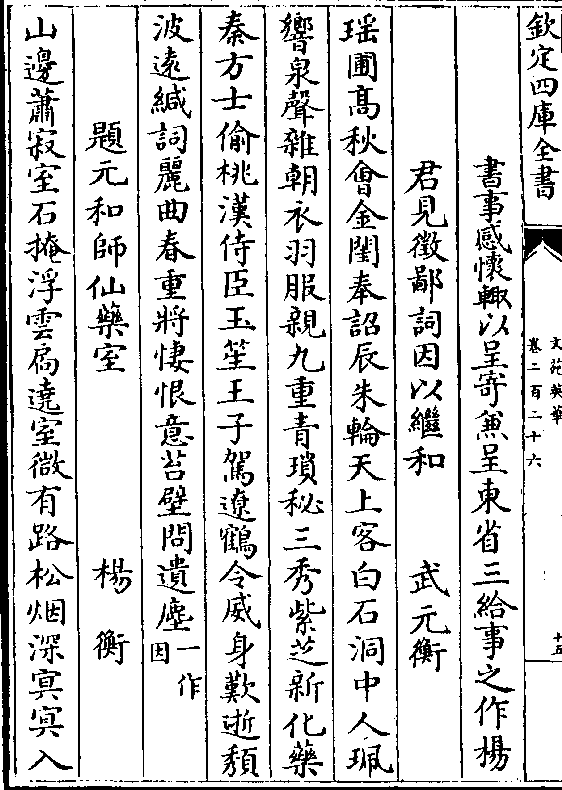 欽定四庫全書
文苑英華
卷二百二十六
十五
書事感懷輙以呈寄兼呈東省三給事之作楊
君見徵鄙詞因以繼和 武元衡
瑶圃髙秋會金閨奉詔辰朱輪天上客白石洞中人珮
響泉聲雜朝衣羽服親九重青瑣秘三秀紫芝新化藥
秦方士偷桃漢侍臣玉笙王子駕遼鶴令威身歎逝頽
波遠緘詞麗曲春重將悽恨意苔壁問遺塵一作因
題元和師仙藥室 楊衡
山邊蕭寂室石掩浮雲扃遶室微有路松烟深冥冥入